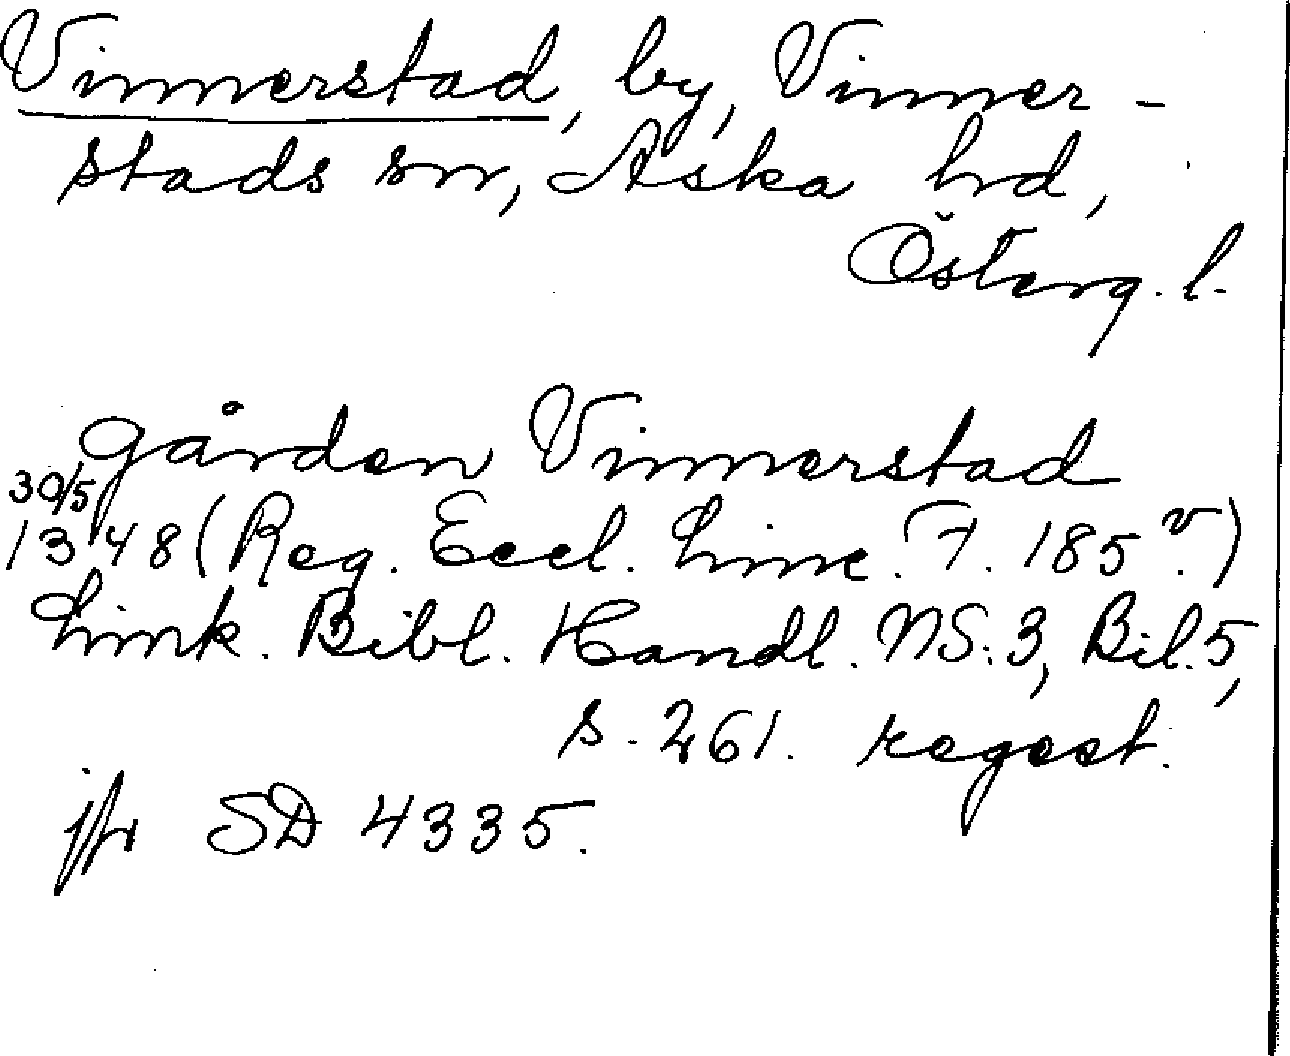 Vinnerstad, by, Vinner-
stads sn, Aska hd,
Österg. l.
gården Vinnerstad
30/5
1348 (Reg. Eccl. Linc. F. 185 v.)
Link. Bibl. Handl. NS. 3, Bil. 5,
s. 261. regest.
jfr SD 4335.